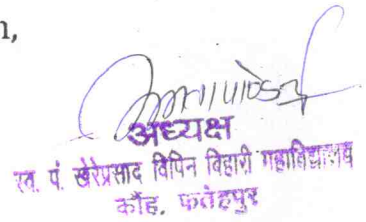 n,
अध्यक्ष
स्व. पं. खेरेप्रसाद विपिन विहारी महाविद्यालय
कोंह, फतेहपुर